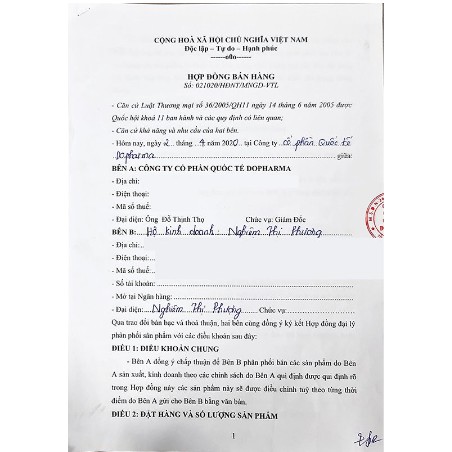 CỘNG HOÀ XÃ HỘI CHỦ NGHĨA VIỆT NAM
Độc lập – Tự do – Hạnh phúc
------o0o------
HỢP ĐỒNG BÁN HÀNG
Số: 021020/HĐNT/MNGD-VTL
- Căn cứ Luật Thương mại số 36/2005/QH11 ngày 14 tháng 6 năm 2005 được
Quốc hội khoá 11 ban hành và các quy định có liên quan;
- Căn cứ khả năng và nhu cầu của hai bên.
- Hôm nay, ngày 2 tháng 4 năm 2020, tại Công ty cổ phần Quốc tế
Dopharma giữa:
BÊN A: CÔNG TY CỔ PHẦN QUỐC TẾ DOPHARMA
- Địa chỉ:
- Điện thoại:
- Mã số thuế:
- Đại diện: Ông Đỗ Thịnh Thọ Chức vụ: Giám Đốc
BÊN B: Hộ kinh doanh: Nghiêm Thị Phương
- Địa chỉ:..
- Điện thoại:...
- Mã số thuế:..
- Số tài khoản:
- Mở tại Ngân hàng:
- Đại diện: Nghiêm Thị Phương Chức vụ:
Qua trao đổi bàn bạc và thoả thuận, hai bên cùng đồng ý ký kết Hợp đồng đại lý
phân phối sản phẩm với các điều khoản sau đây:
ĐIỀU 1: ĐIỀU KHOẢN CHUNG
- Bên A đồng ý chấp thuận để Bên B phân phối bán các sản phẩm do Bên
A sản xuất, kinh doanh theo các chính sách do Bên A qui định được qui định rõ
trong Hợp đồng này các sản phẩm này sẽ được điều chỉnh tuỳ theo từng thời
điểm do Bên A gửi cho Bên B bằng văn bản.
ĐIỀU 2: ĐẶT HÀNG VÀ SỐ LƯỢNG SẢN PHẨM
1